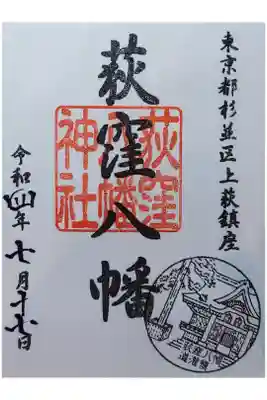 東京都杉並区上荻鎮座
荻窪八幡
荻窪
八幡
神社
令和四年七月十七日